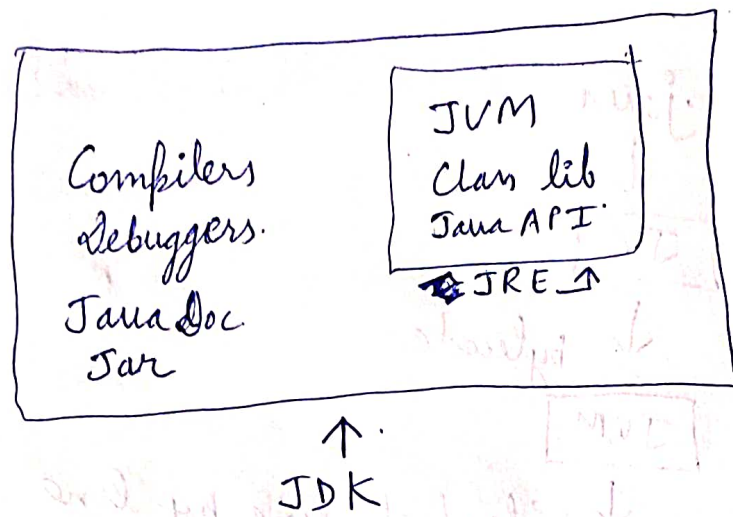 Compilers
Debuggers.
Java Doc.
Jar
JVM
Class lib
Java API.
JRE
JDK